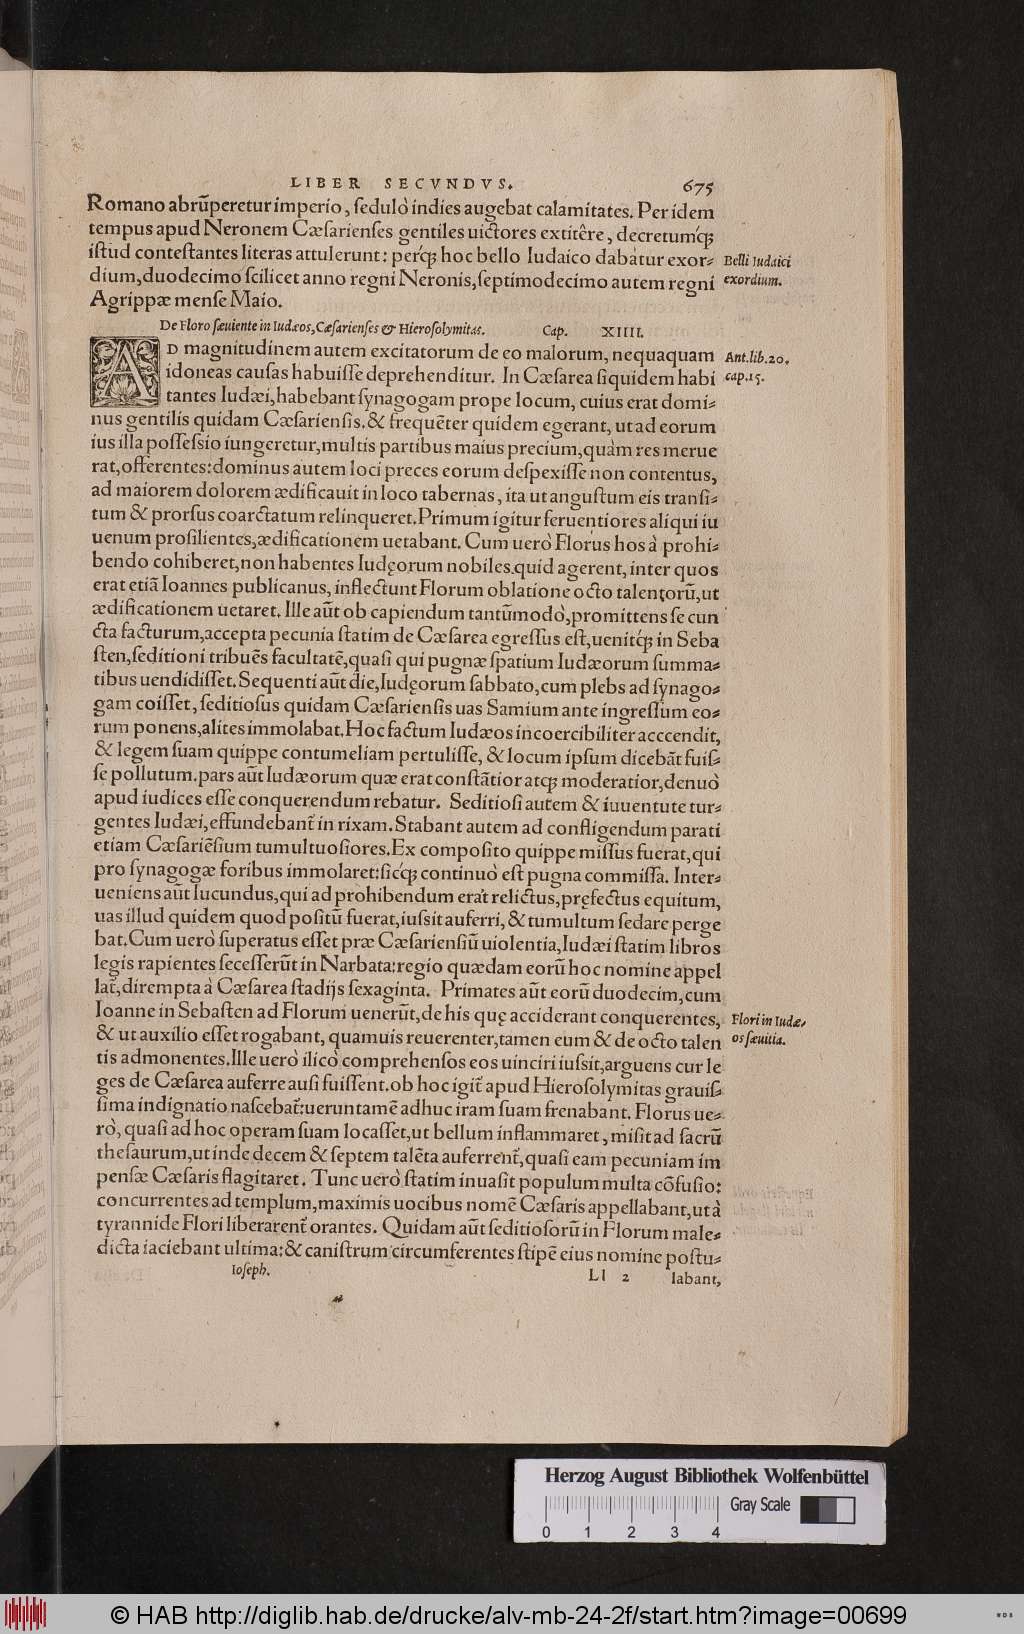 LIBER SECVNDVS. 675
Romano abrũperetur imperio, ſedulò indies augebat calamitates. Per idem
tempus apud Neronem Cæſarienſes gentiles uictores extitêre, decretumq́;
iſtud conteſtantes literas attulerunt: perq́; hoc bello Iudaico dabatur exor-
dium, duodecimo ſcilicet anno regni Neronis, ſeptimodecimo autem regni
Agrippæ menſe Maio.
Belli Iudaici
exordium.
De Floro ſæuiente in Iudæos, Cæſarienſes & Hieroſolymitas. Cap. XIIII.
AD magnitudinem autem excitatorum de eo malorum, nequaquam
idoneas cauſas habuiſſe deprehenditur. In Cæſarea ſiquidem habi
tantes Iudæi, habebant ſynagogam prope locum, cuius erat domi-
Ant. lib. 20.
cap. 15.
nus gentilis quidam Cæſarienſis. & frequẽter quidem egerant, ut ad eorum
ius illa poſſeſsio iungeretur, multis partibus maius precium, quàm res merue
rat, offerentes: dominus autem loci preces eorum deſpexiſſe non contentus,
ad maiorem dolorem ædificauit in loco tabernas, ita ut anguſtum eis tranſi-
tum & prorſus coarctatum relinqueret. Primum igitur feruentiores aliqui iu
uenum proſilientes, ædificationem uetabant. Cum uerò Florus hos à prohi-
bendo cohiberet, non habentes Iudęorum nobiles. quid agerent, inter quos
erat etiã Ioannes publicanus, inflectunt Florum oblatione octo talentorũ, ut
ædificationem uetaret. Ille aũt ob capiendum tantũmodò, promittens ſe cun
cta facturum, accepta pecunia ſtatim de Cæſarea egreſſus eſt, uenitq́; in Seba
ſten, ſeditioni tribuẽs facultatẽ, quaſi qui pugnæ ſpatium Iudæorum ſumma-
tibus uendidiſſet. Sequenti aũt die, Iudęorum ſabbato, cum plebs ad ſynago-
gam coiſſet, ſeditioſus quidam Cæſarienſis uas Samium ante ingreſſum eo-
rum ponens, alites immolabat. Hoc factum Iudæos incoercibiliter acccendit,
& legem ſuam quippe contumeliam pertuliſſe, & locum ipſum dicebãt fuiſ-
ſe pollutum. pars aũt Iudæorum quæ erat conſtãtior atq; moderatior, denuò
apud iudices eſſe conquerendum rebatur. Seditioſi autem & iuuentute tur-
gentes Iudæi, effundebant̃ in rixam. Stabant autem ad confligendum parati
etiam Cæſariẽſium tumultuoſiores. Ex compoſito quippe miſſus fuerat, qui
pro ſynagogæ foribus immolaret: ſicq́; continuò eſt pugna commiſſa. Inter-
ueniens aũt Iucundus, qui ad prohibendum erat relictus, pręfectus equitum,
uas illud quidem quod poſitũ fuerat, iuſsit auferri, & tumultum ſedare perge
bat. Cum uerò ſuperatus eſſet præ Cæſarienſiũ uiolentia, Iudæi ſtatim libros
legis rapientes ſeceſſerũt in Narbata: regio quædam eorũ hoc nomine appel
lat̃, dirempta à Cæſarea ſtadijs ſexaginta. Primates aũt eorũ duodecim, cum
Ioanne in Sebaſten ad Florum uenerũt, de his quę acciderant conquerentes,
& ut auxilio eſſet rogabant, quamuis reuerenter, tamen eum & de octo talen
tis admonentes. Ille uerò ilicò comprehenſos eos uinciri iuſsit, arguens cur le
ges de Cæſarea auferre auſi fuiſſent. ob hoc igit̃ apud Hieroſolymitas grauiſ-
ſima indignatio naſcebat̃: ueruntamẽ adhuc iram ſuam frenabant. Florus ue-
rò, quaſi ad hoc operam ſuam locaſſet, ut bellum inflammaret, miſit ad ſacrũ
theſaurum, ut inde decem & ſeptem talẽta auferrent̃, quaſi eam pecuniam im
penſæ Cæſaris flagitaret. Tunc uerò ſtatim inuaſit populum multa cõfuſio:
concurrentes ad templum, maximis uocibus nomẽ Cæſaris appellabant, ut à
tyrannide Flori liberarent̃ orantes. Quidam aũt ſeditioſorũ in Florum male-
dicta iaciebant ultima: & caniſtrum circumferentes ſtipẽ eius nomine poſtu-
Flori in Iudæ-
os ſæuitia.
Ioſeph. Ll 2 labant,
Herzog August Bibliothek Wolfenbüttel
Gray Scale
0 1 2 3 4
© HAB http://diglib.hab.de/drucke/alv-mb-24-2f/start.htm?image=00699